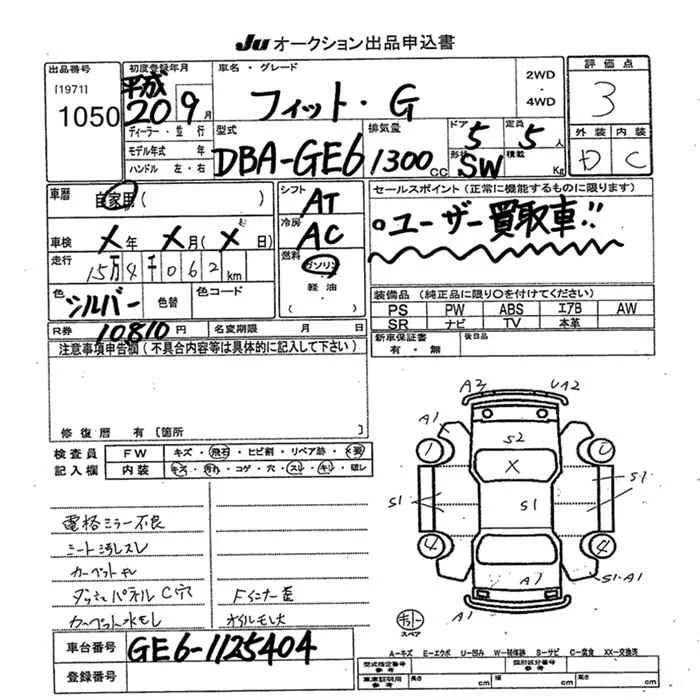 Ju オークション出品申込書
出品番号
[1971]
1050
初度登録年月
平成
20 9月
車名・グレード
フィット・G
2WD
・
4WD
評価点
3
ディーラー・並行
モデル年式 年
ハンドル 左・右
型式
DBA-GE6
排気量
1300cc
ドア
5
形状
SW
定員
5人
積載
Kg
外装 内装
D C
車歴
自家用(　)
車検 X年 X月(X日)
走行
15万4千062km
色
シルバー
色替
色コード
R券 10810円
名変期限 月 日
シフト
AT
冷房
AC
燃料
ガソリン
軽油
(　)
セールスポイント(正常に機能するものに限ります)
。ユーザー買取車!!
装備品(純正品に限り○を付けてください)
PS PW ABS エアB AW
SR ナビ TV 本革
新車保証書
有・無
後日品
注意事項申告欄(不具合内容等は具体的に記入して下さい)
修復歴 有[箇所　]
検査員
記入欄
FW キズ・飛石・ヒビ割・リペア跡・X要
内装 キズ・汚れ・コゲ・穴・スレ・キレ・破レ
電格ミラー不良
シート汚レスレ
カーペットキレ
ダッシュパネルC穴
カーペット水モレ
Fインナー歪
オイルモレ大
車台番号 GE6-1125404
登録番号
A2 U2
A1
1
S2
X
S1
S1
S1
4
4
A1
A1
S1・A1
スペア
A=キズ E=エクボ U=凹ミ W=補修跡 S=サビ C=腐食 XX=交換済
型式指定番号
参考
類別区分番号
参考
車庫証明用
参考
長さ cm 幅 cm 高さ cm